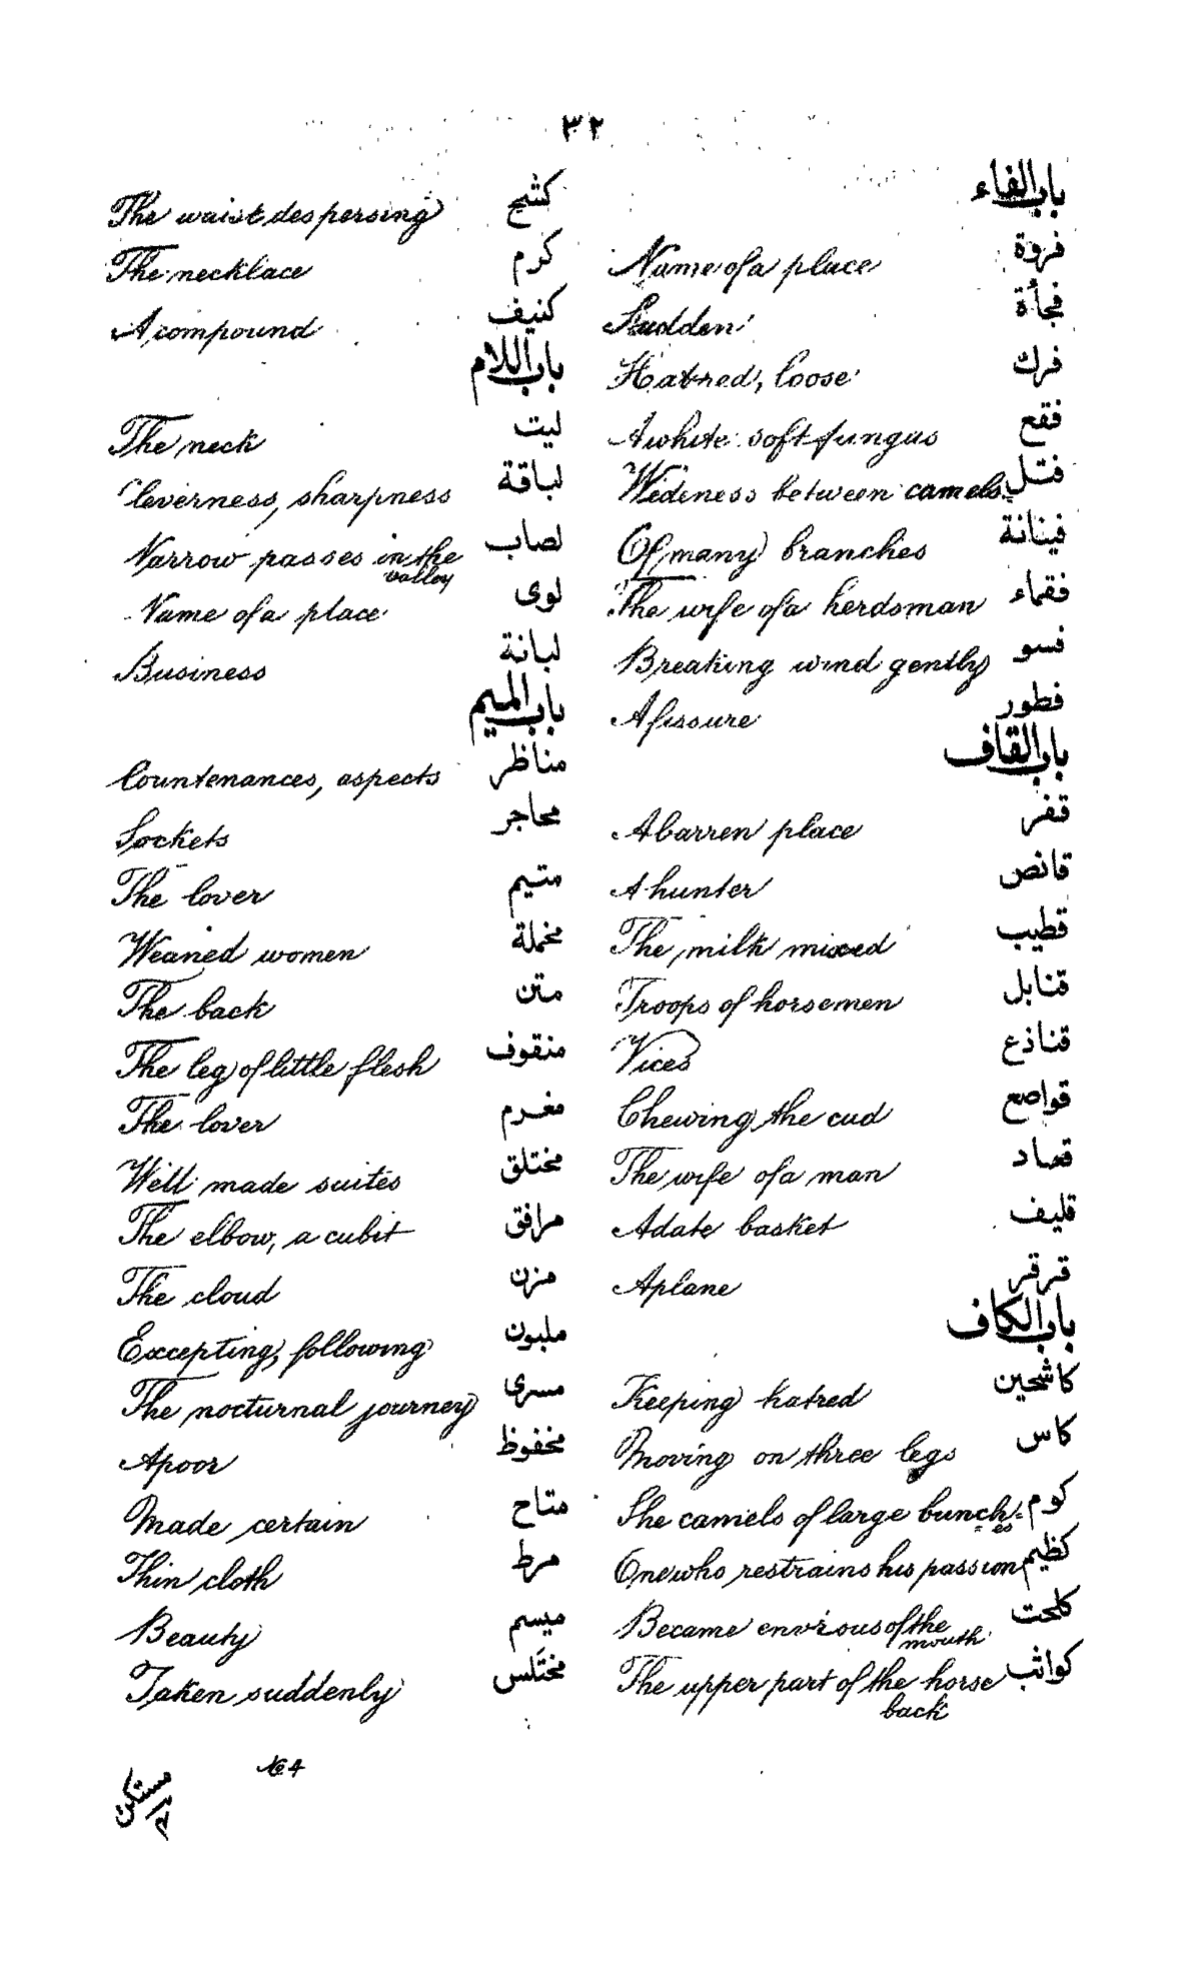 ٣٢
باب الفاء
فروة Name of a place
فجأة Sudden
فرك Hatred, loose
فقع A white soft fungus
فتل Wideness between camels
فينانة Of many branches
فقماء The wife of a herdsman
فسو Breaking wind gently
فطور A fissure
باب القاف
قفر A barren place
قانص A hunter
قطيب The milk mixed
قنابل Troops of horsemen
قناذع Vices
قواصع Chewing the cud
قعاد The wife of a man
قليف A date basket
قرقر A plane
باب الكاف
كاشحين Keeping hatred
كاس Moving on three legs
كوم The camels of large bunch=
=es
كظيم One who restrains his passion
كلحت Became envious of the
mouth
كواثب The upper part of the horse
back
كشيح The waist despersing
كرم The necklace
كنيف A compound
باب اللام
ليت The neck
لباقة Cleverness, sharpness
لصاب Narrow passes in the
valley
لوى Name of a place
لبانة Business
باب الميم
مناظر Countenances, aspects
محاجر Sockets
متيم The lover
مخملة Weaned women
متن The back
منقوف The leg of little flesh
مغرم The lover
مختلق Well made suites
مرافق The elbow, a cubit
مزن The cloud
ملبون Excepting, following
مسرى The nocturnal journey
مخفوظ A poor
متاح Made certain
مرط Thin cloth
ميسم Beauty
مختَلس Taken suddenly
No 4